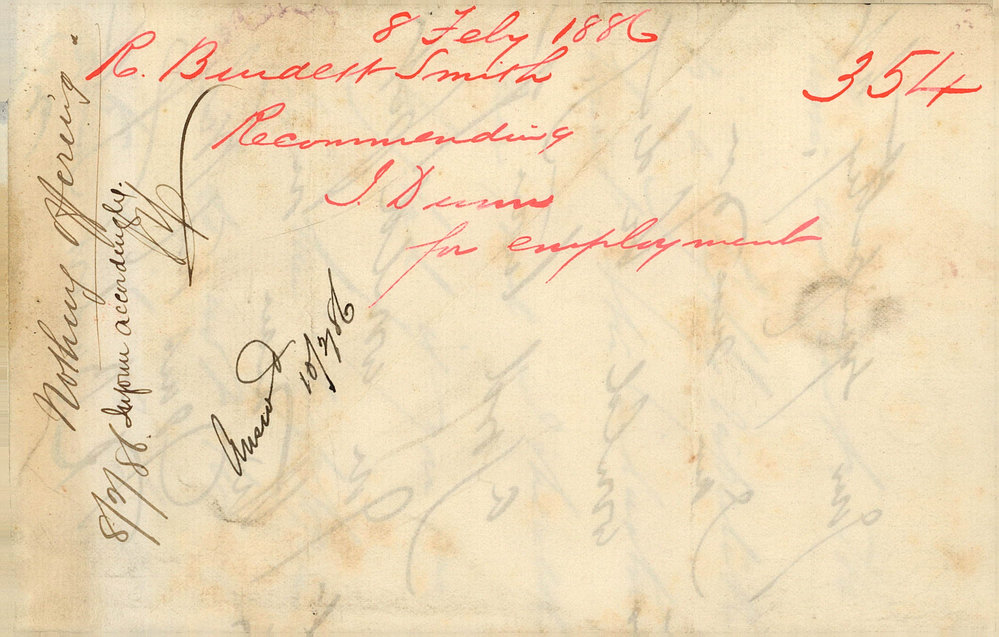 8 Feby 1886
R. Burdett Smith
354
Recommending
J. Dunn
for employment
Nothing offering.
Inform accordingly.
8/2/86.
Answd
10/2/86